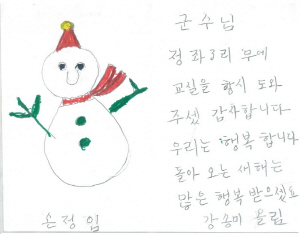 군수님
정좌3리 무에
교실을 항시 도와
주셨 감차합니다
우리는 행복합니다
돌아 오는 새해는
많은 행복 받으셨요
강송미 올림
손정임